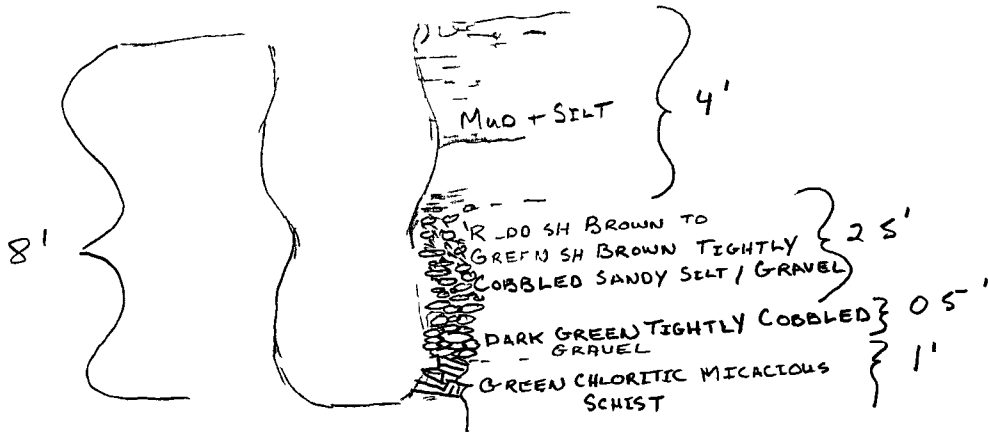 8'
4'
MUD + SILT
R_DD SH BROWN TO
GREEN SH BROWN TIGHTLY
COBBLED SANDY SILT / GRAVEL
2 5'
DARK GREEN TIGHTLY COBBLED
GRAVEL
0 5'
GREEN CHLORITIC MICACIOUS
SCHIST
1'